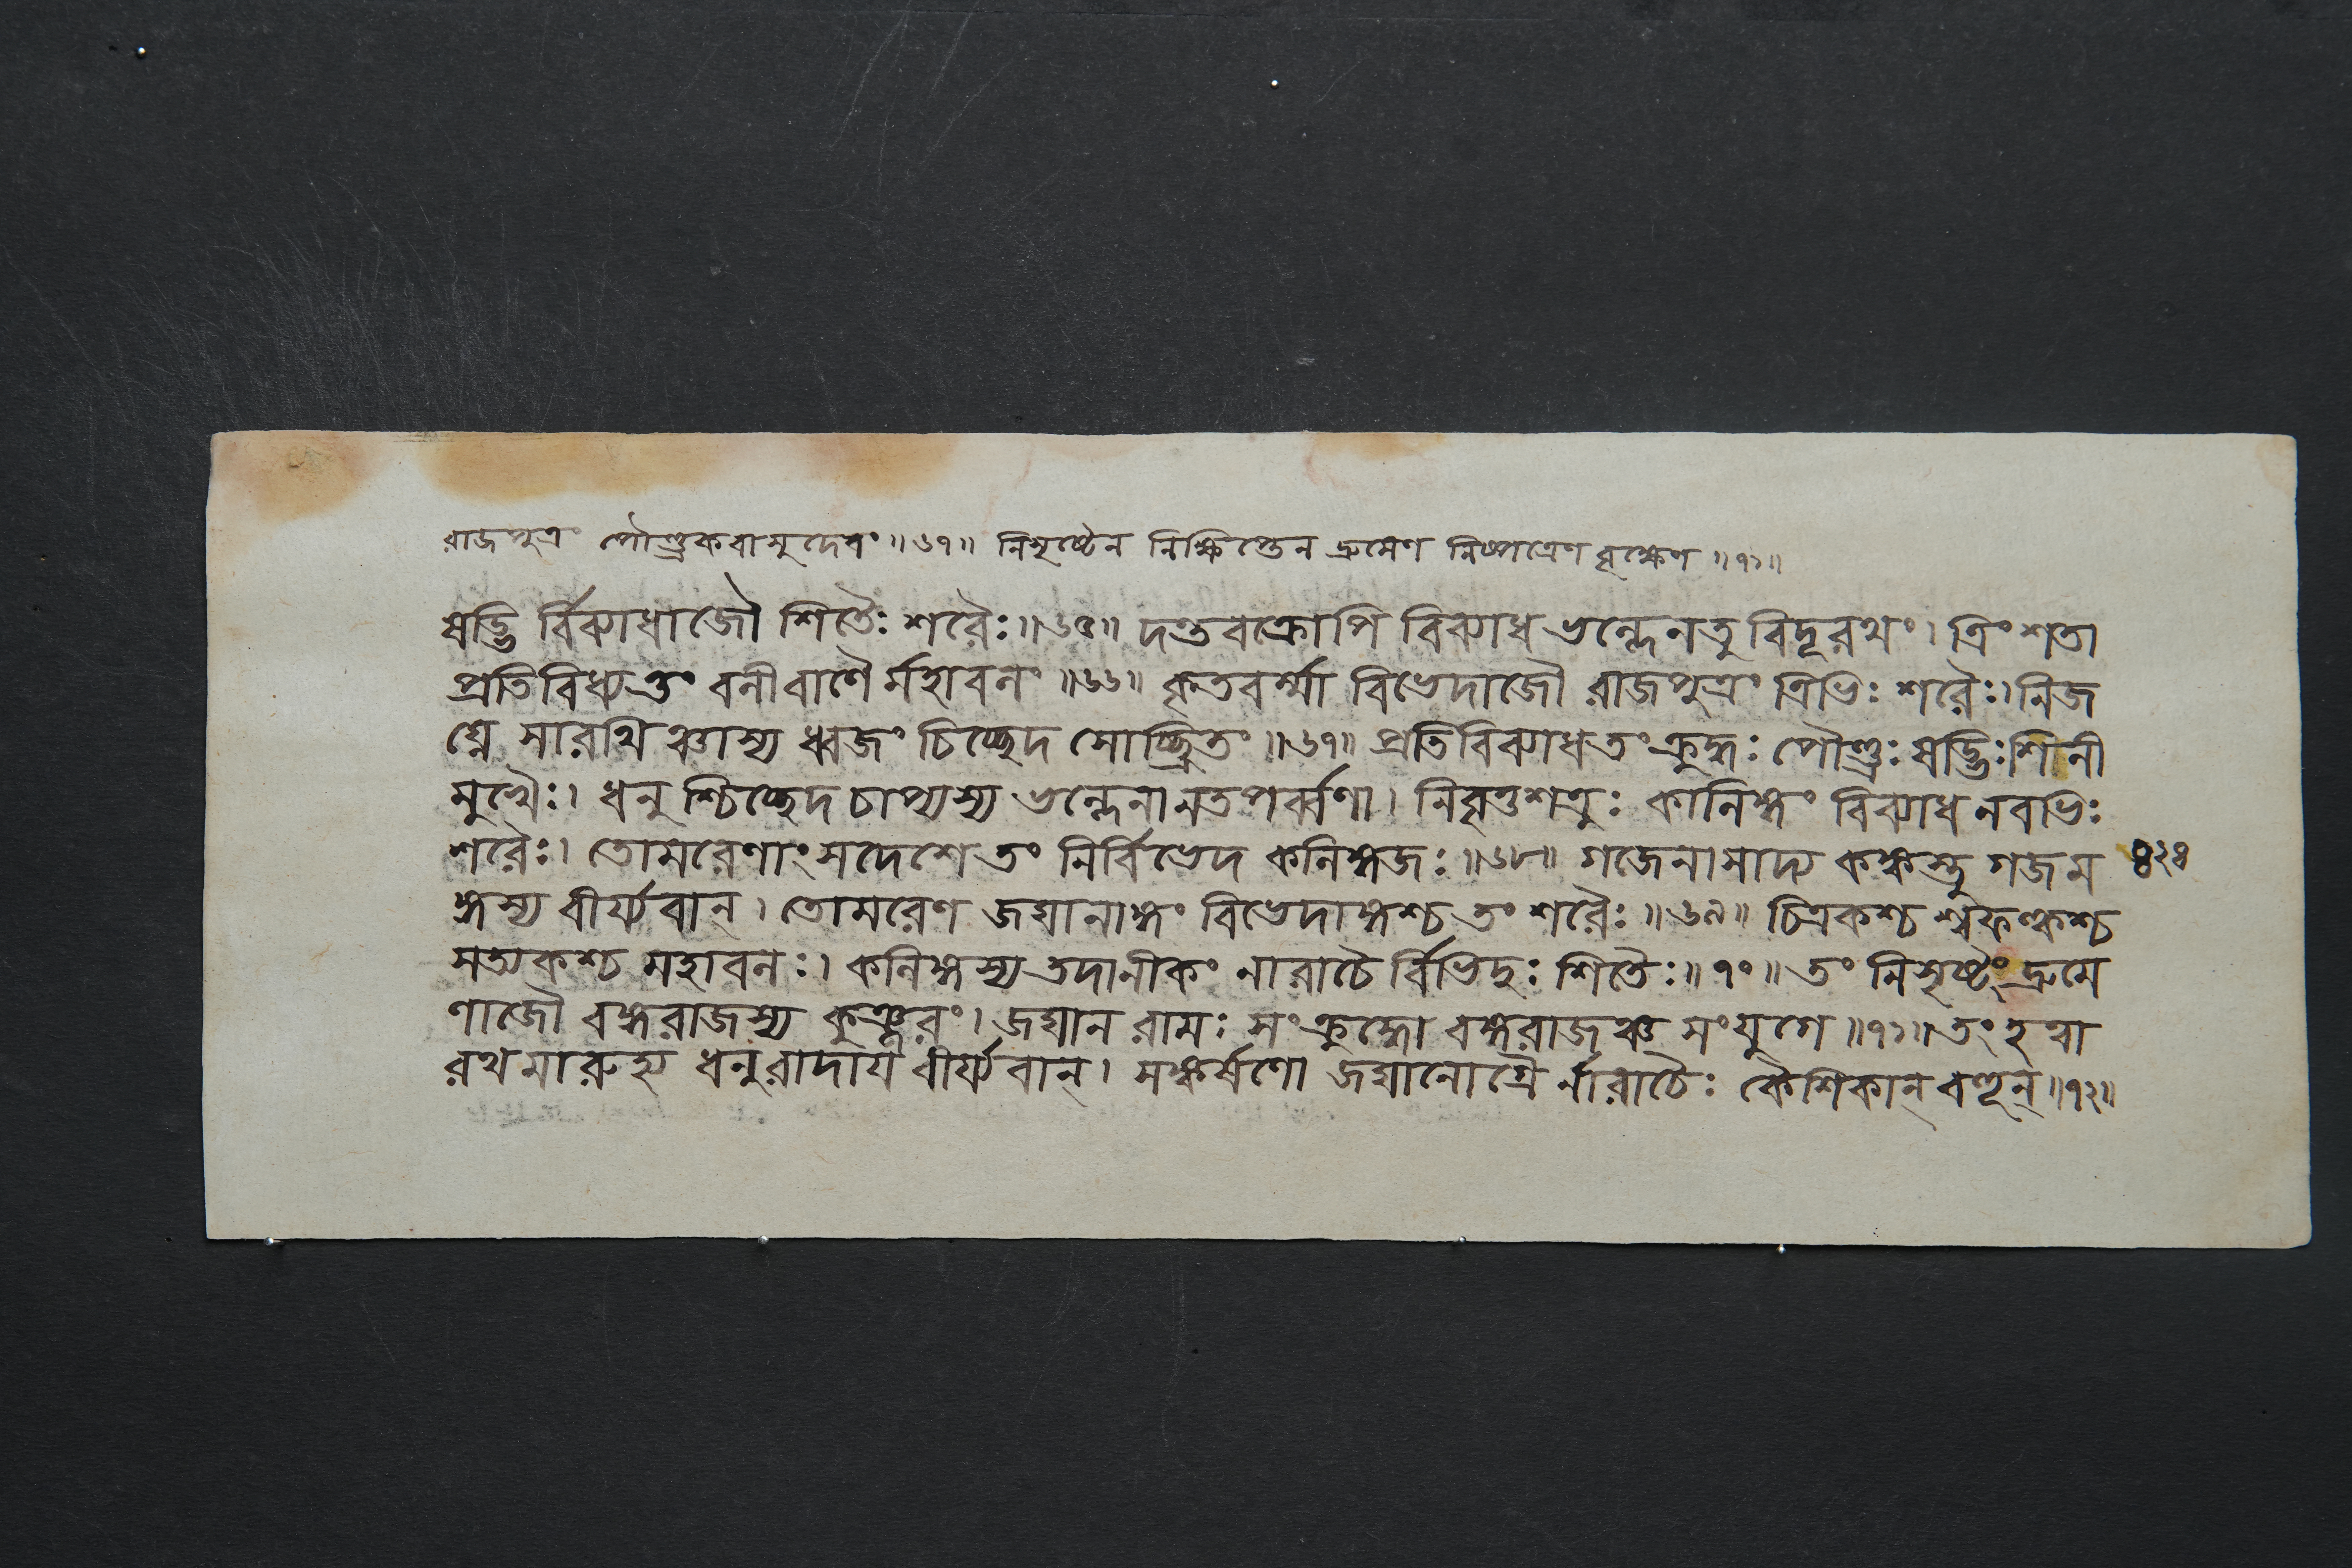 রাজপুত্রং পৌণ্ড্রকবাসুদেবং ॥৬৭॥ নিসৃষ্টেন নিক্ষিপ্তেন দ্রুমেণ নিষ্পত্রেণ বৃক্ষেণ ॥৭১॥
ষড্ভি র্বিব্যাধাজৌ শিতৈঃ শরৈঃ ॥৬৫॥ দন্তবক্রোপি বিব্যাধ ভল্লেন তু বিদূরথং । ত্রিংশতা
প্রতিবিধ্যত্তং বলী বাণৈ র্মহাবলং ॥৬৬॥ কৃতবর্ম্মা বিভেদাজৌ রাজপুত্রং ত্রিভিঃ শরৈঃ । নিজ
ঘ্নে সারথিঞ্চাস্য ধ্বজং চিচ্ছেদ সোচ্ছ্রিতং ॥৬৭॥ প্রতিবিব্যাধ তং ক্রুদ্ধঃ পৌণ্ড্রঃ ষড্ভিঃ শিলী
মুখৈঃ । ধনু শ্চিচ্ছেদ চাপ্যস্য ভল্লেনানতপর্ব্বণা । নিবৃত্তশত্রুঃ কালিঙ্গং বিব্যাধ নবভিঃ
শরৈঃ । তোমরেণাংসদেশে তং নির্বিভেদ কলিঙ্গজঃ ॥৬৮॥ গজেনাসাদ্য কঙ্কস্তু গজম ৪২৪
ঙ্গস্য বীর্য্যবান্ । তোমরেণ জঘানাঙ্গং বিভেদাঙ্গশ্চ তং শরৈঃ ॥৬৯॥ চিত্রকশ্চ শ্বফল্কশ্চ
সত্যকশ্চ মহাবলঃ । কলিঙ্গস্য তদানীকং নারাচৈ র্বিভিদুঃ শিতৈঃ ॥৭০॥ তং নিসৃষ্টং দ্রুমে
ণাজৌ বঙ্গরাজস্য কুঞ্জরং । জঘান রামঃ সংক্রুদ্ধো বঙ্গরাজঞ্চ সংযুগে ॥৭১॥ তং হত্বা
রথমারুহ্য ধনুরাদায় বীর্য্যবান্ । সঙ্কর্ষণো জঘানোগ্রৈ র্নারাচৈঃ কৈশিকান্ বহূন্ ॥৭২॥